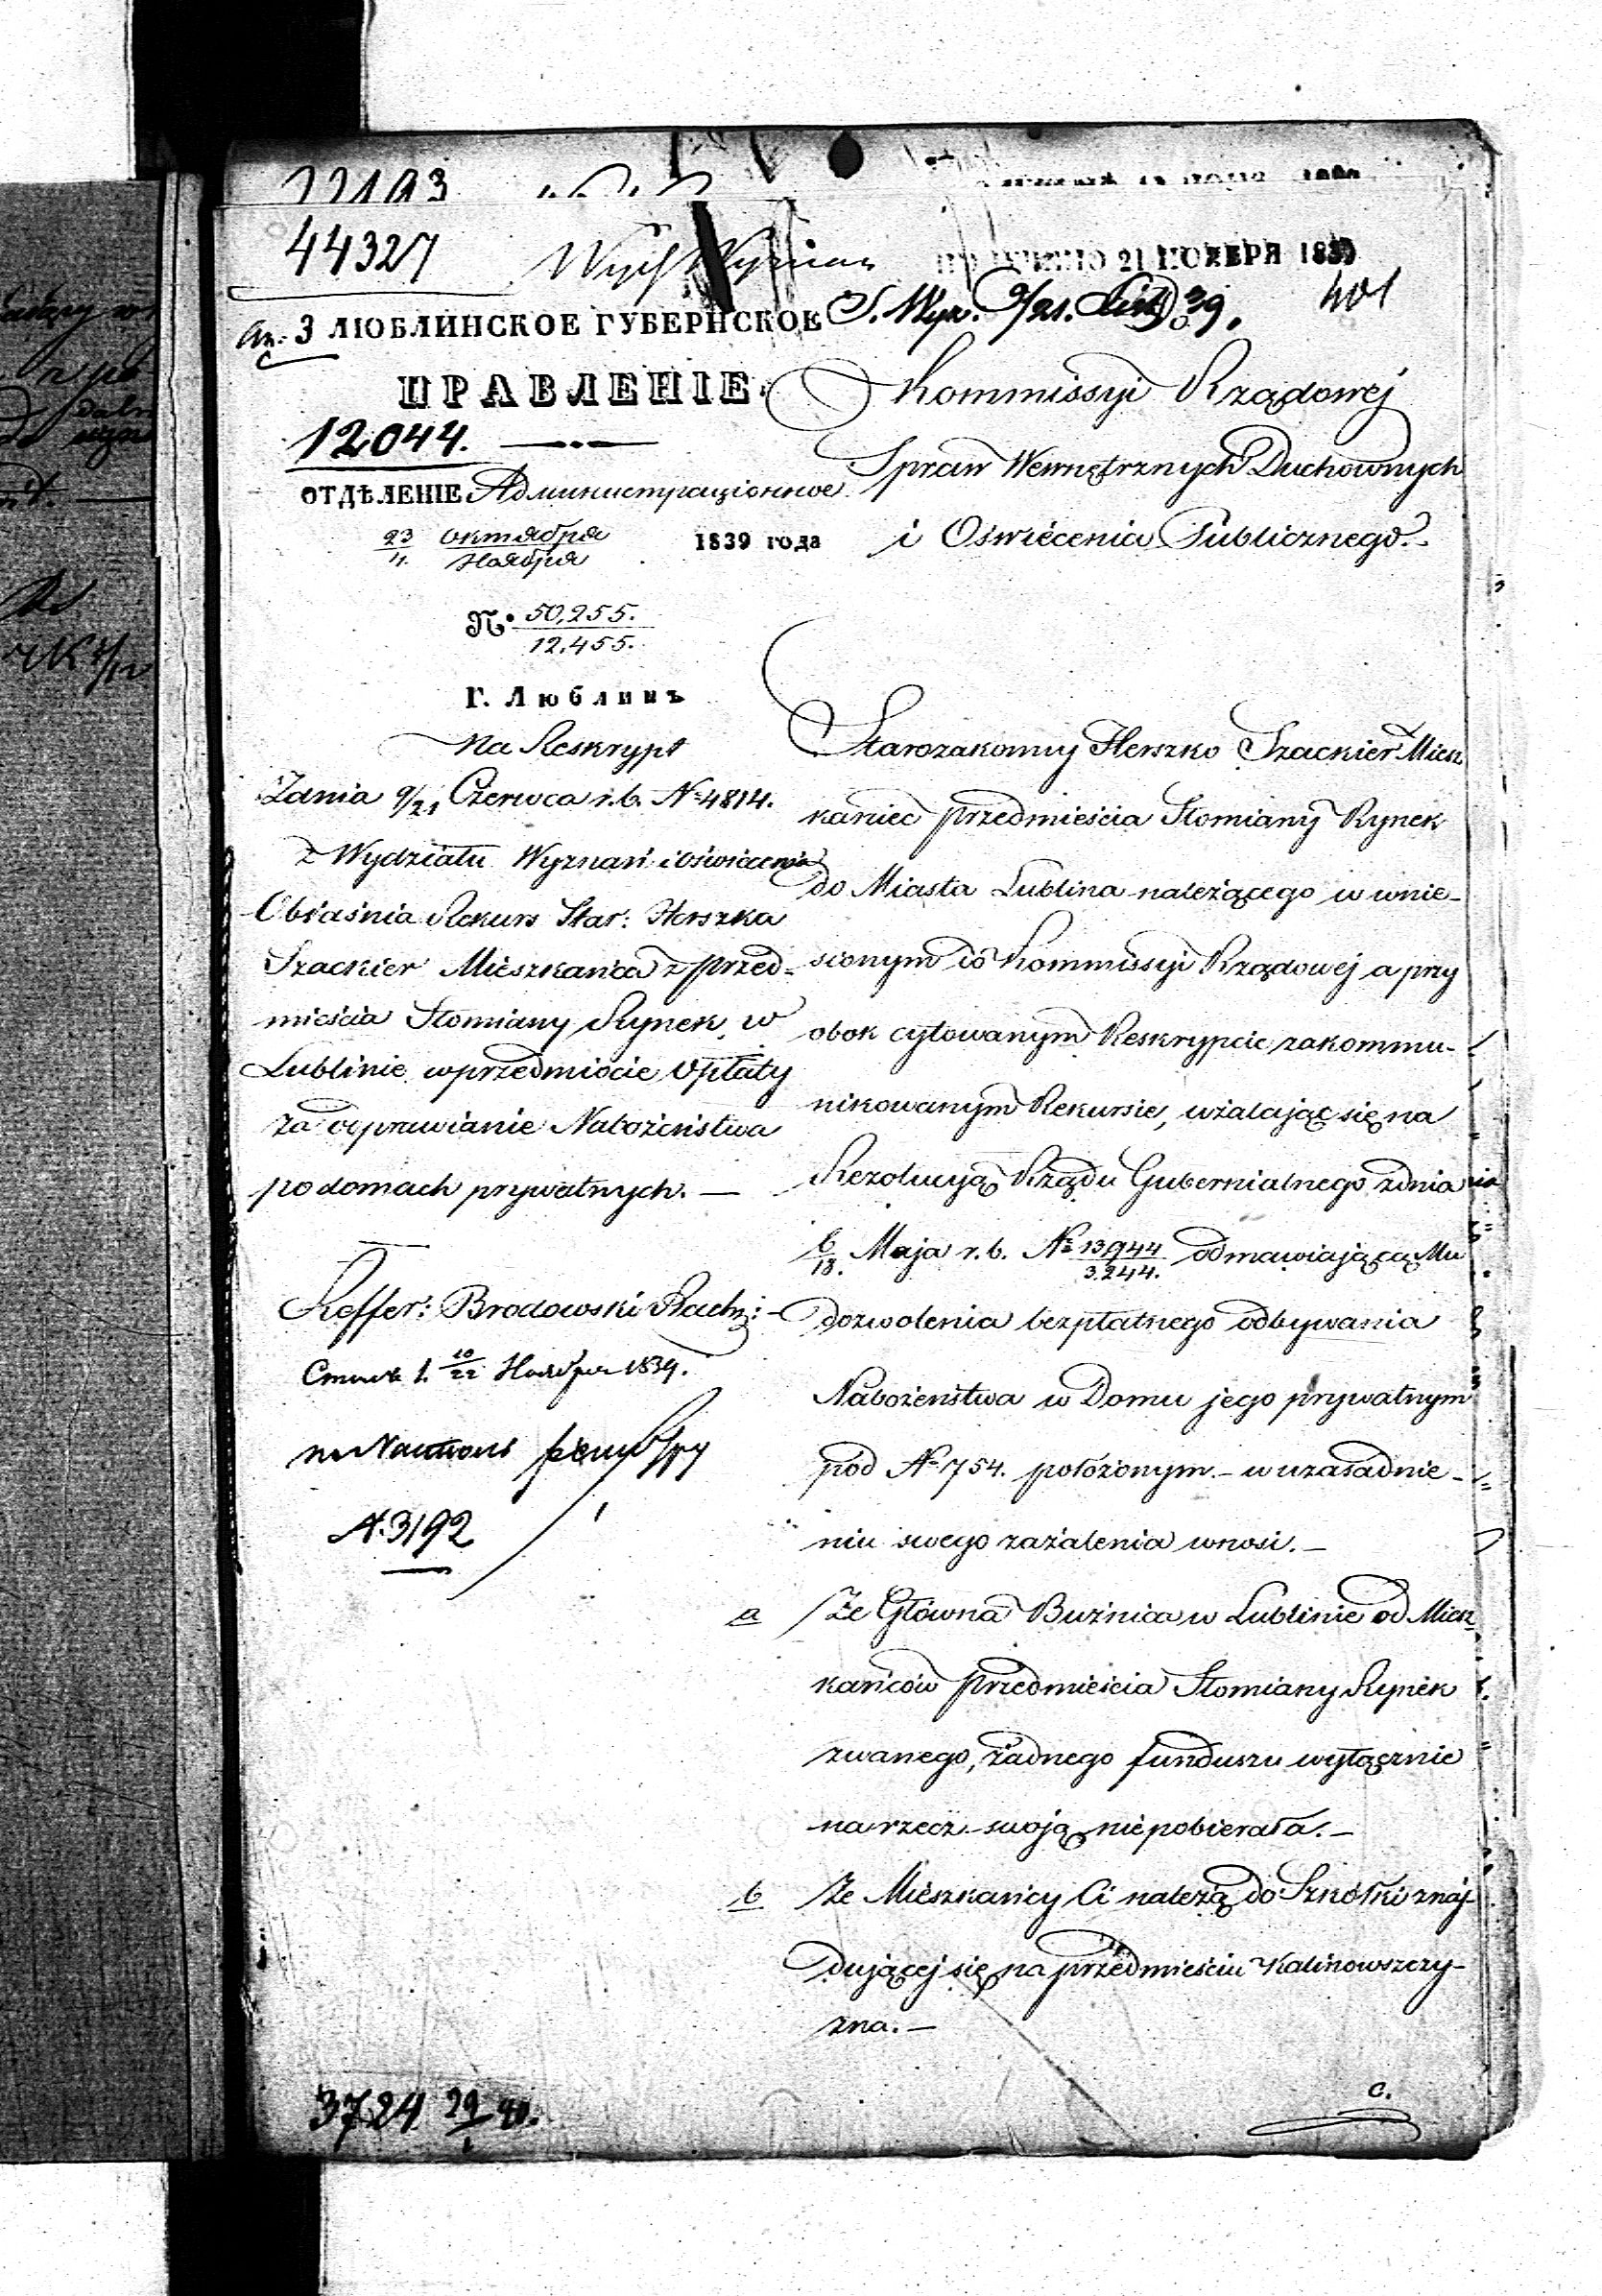 44327
ПОЛУЧЕНО 21 НОЯБРЯ 1839
401
ЛЮБЛИНСКОЕ ГУБЕРНСКОЕ
ПРАВЛЕНІЕ.
12044.
ОТДѢЛЕНІЕ Административное
23 октября
4. Ноября
1839 года
№ 50,255.
12,455.
Г. Люблинъ
Na Reskrypt
Zdnia 9/21 Czerwca r. b. № 4814.
z Wydziału Wyznań i oświécenia
Obiaśnia Rekurs Star: Herszka
Szackier Mieszkańca z przed-
mieścia Słomiany Rynek w
Lublinie wprzedmiocie Opłaty
za odprawianie Nabożeństwa
po domach prywatnych. —
Reffer: Brodowski Rachm:
10/22 Ноября 1839.
№ 3192
Kommissyi Rządowéj
Spraw Wewnętrznych Duchownych
i Oświécenia Publicznego. -
Starozakonny Herszko Szackier Miesz
kaniec przedmieścia Słomiany Rynek
do Miasta Lublina należącego w wnie-
sionym do Kommissyi Rządowéj a przy
obok cytowanym Reskrypcie zakommu-
nikowanym Rekursie, użalając się na
Rezolucyą Rządu Gubernialnego zdnia
6/18. Maja r. b. № 13,944/3.244. odmawiającą Mu
dozwolenia bezpłatnego odbywania
Nabożeństwa w Domu jego prywatnym
pod № 754. położonym. - w uzasadnie-
niu swego zażalenia wnosi. —
a Że Główna Bużnica w Lublinie od Miesz-
kańców przedmieścia Słomiany Rynek
zwanego, żadnego funduszu wyłącznie
na rzecz swoją nie pobierała. —
b Że Mieszkańcy Ci należą do Szkółki znaj-
dującéj się na przedmieściu Kalinowszczy-
zna. —
c.
3724 29/1 40.